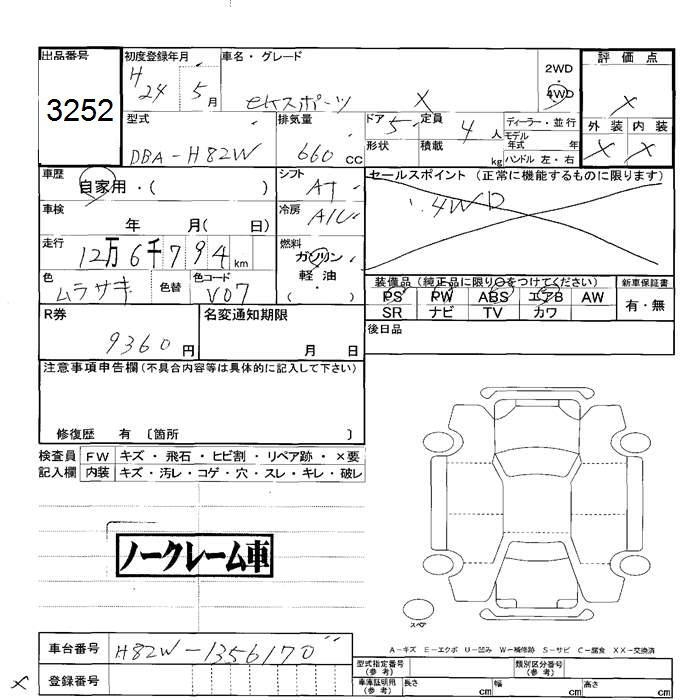 出品番号 初度登録年月 車名・グレード 評価点
3252 H 24 5月 eKスポーツ X 2WD 4WD ×
型式 排気量 ドア 5 定員 4人 ディーラー・並行 外装 内装
DBA-H82W 660cc 形状 積載 kg モデル年式 年 ハンドル 左・右 × ×
車歴 自家用・( ) シフト AT セールスポイント (正常に機能するものに限ります)
車検 年 月( 日) 冷房 A/C 4WD
走行 12万6千794km 燃料 ガソリン
色 ムラサキ 色替 色コード V07 軽油 ( ) 装備品 (純正品に限り○をつけてください) 新車保証書
PS PW ABS エアB AW 有・無
R券 名変通知期限 SR ナビ TV カワ
9360円 月 日 後日品
注意事項申告欄 (不具合内容等は具体的に記入して下さい)
修復歴 有 〔箇所 〕
検査員 FW キズ・飛石・ヒビ割・リペア跡・×要
記入欄 内装 キズ・汚レ・コゲ・穴・スレ・キレ・破レ
ノークレーム車
スペア
A-キズ E-エクボ U-凹み W-補修跡 S-サビ C-腐食 XX-交換済
車台番号 H82W-1356170 型式指定番号 (参考) 類別区分番号 (参考)
登録番号 車庫証明用 (参考) 長さ cm 幅 cm 高さ cm
×